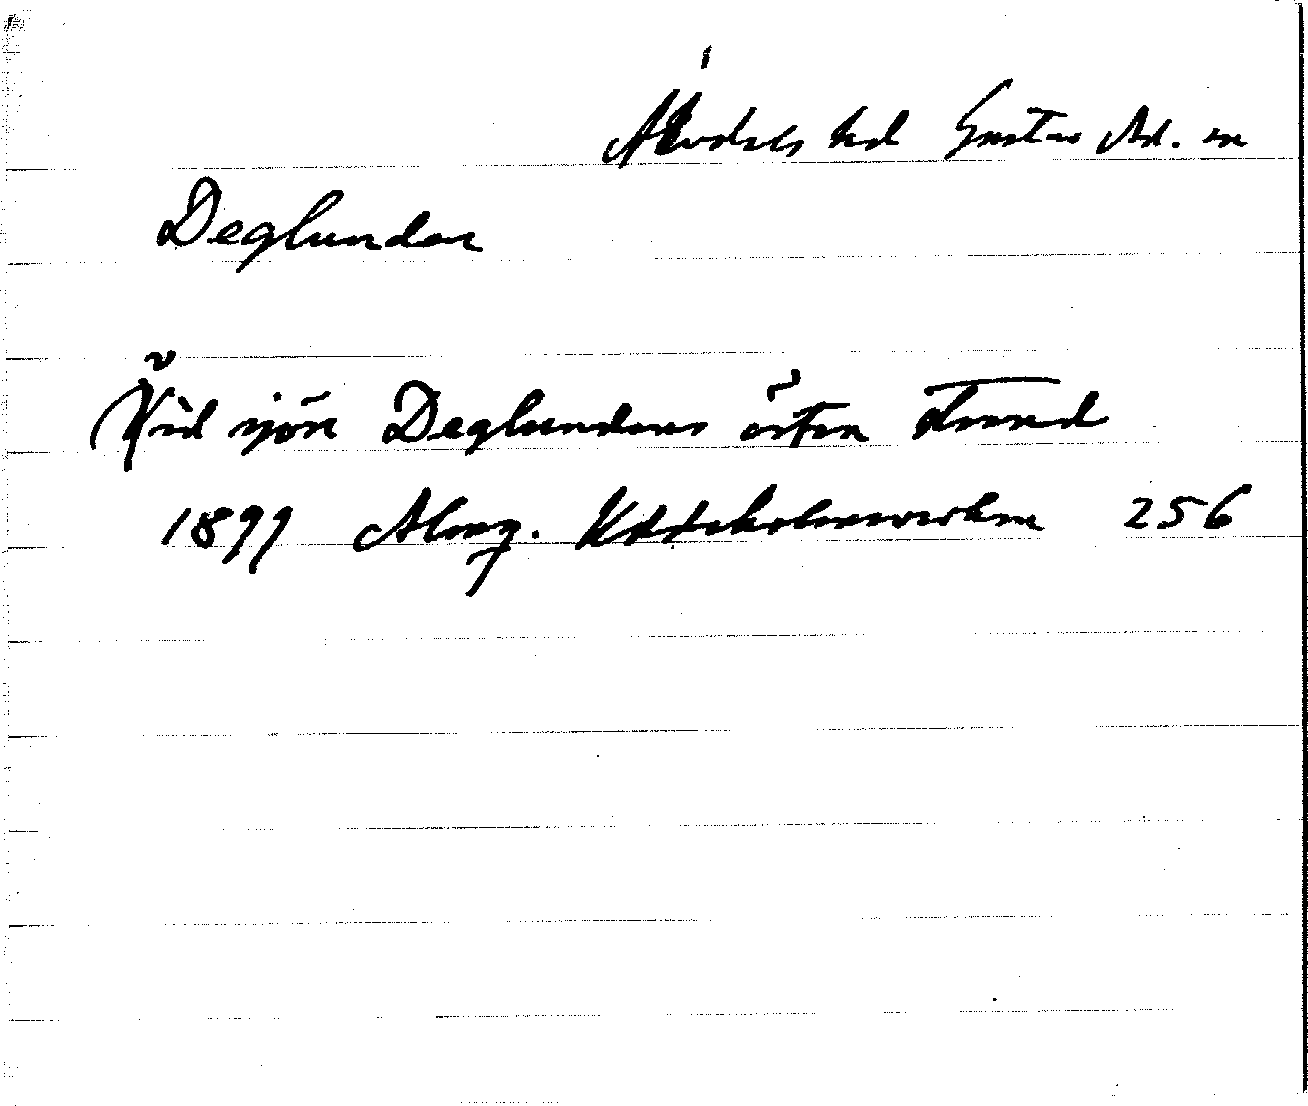 Älvdals hd Gustav Ad. sn
Deglunden
Vid sjön Deglundens östra strand
1899 Almq. Uddeholmsverken 256